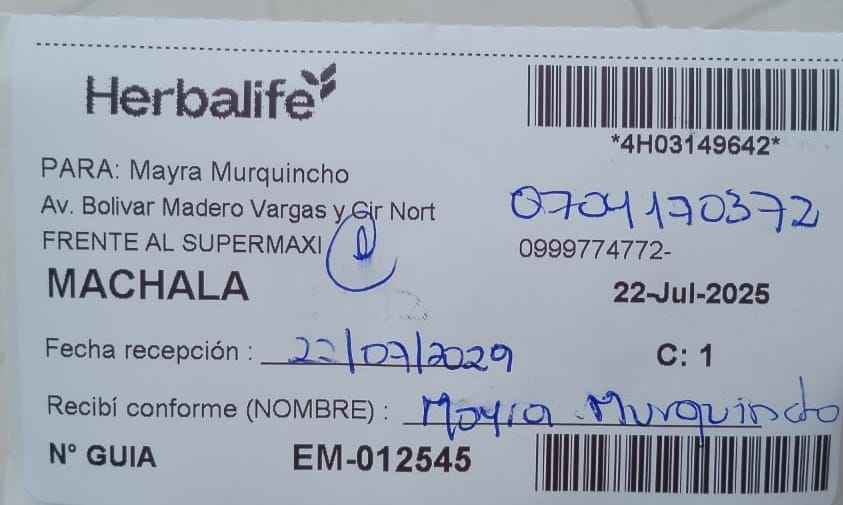 Herbalife
*4H03149642*
PARA: Mayra Murquincho
Av. Bolivar Madero Vargas y Cir Nort
0704170372
FRENTE AL SUPERMAXI
0999774772-
MACHALA
22-Jul-2025
Fecha recepción : 22/07/2029
C: 1
Recibí conforme (NOMBRE) : Mayra Murquincho
N° GUIA EM-012545